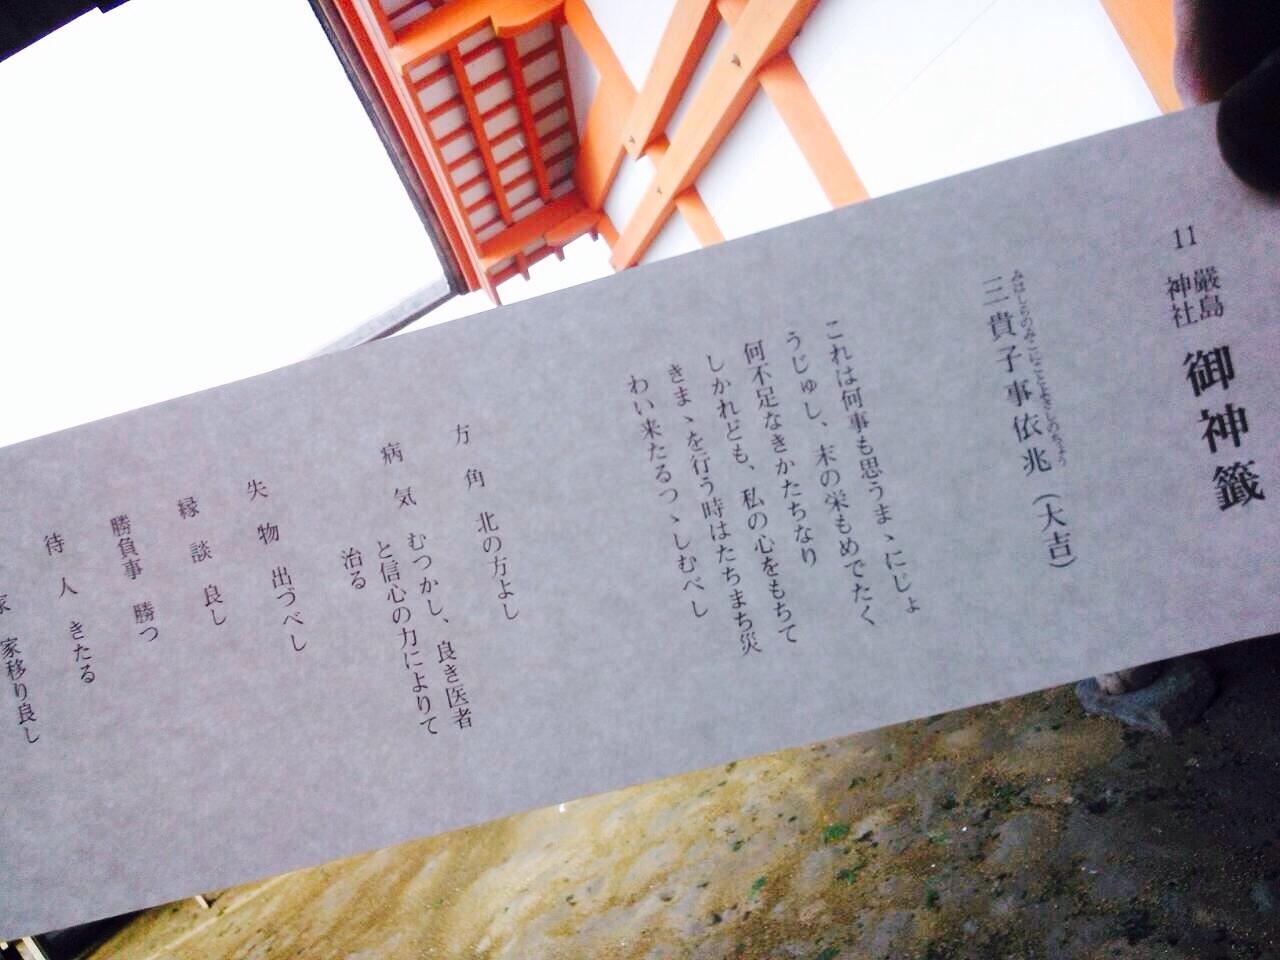 11 嚴島神社 御神籤
みはしらのみこにことよさしのちょう
三貴子事依兆（大吉）
これは何事も思うまゝにじょ
うじゅし、末の栄もめでたく
何不足なきかたちなり
しかれども、私の心をもちて
きまゝを行う時はたちまち災
わい来たるつゝしむべし
方角 北の方よし
病気 むつかし、良き医者
と信心の力によりて
治る
失物 出づべし
縁談 良し
勝負事 勝つ
待人 きたる
家 家移り良し